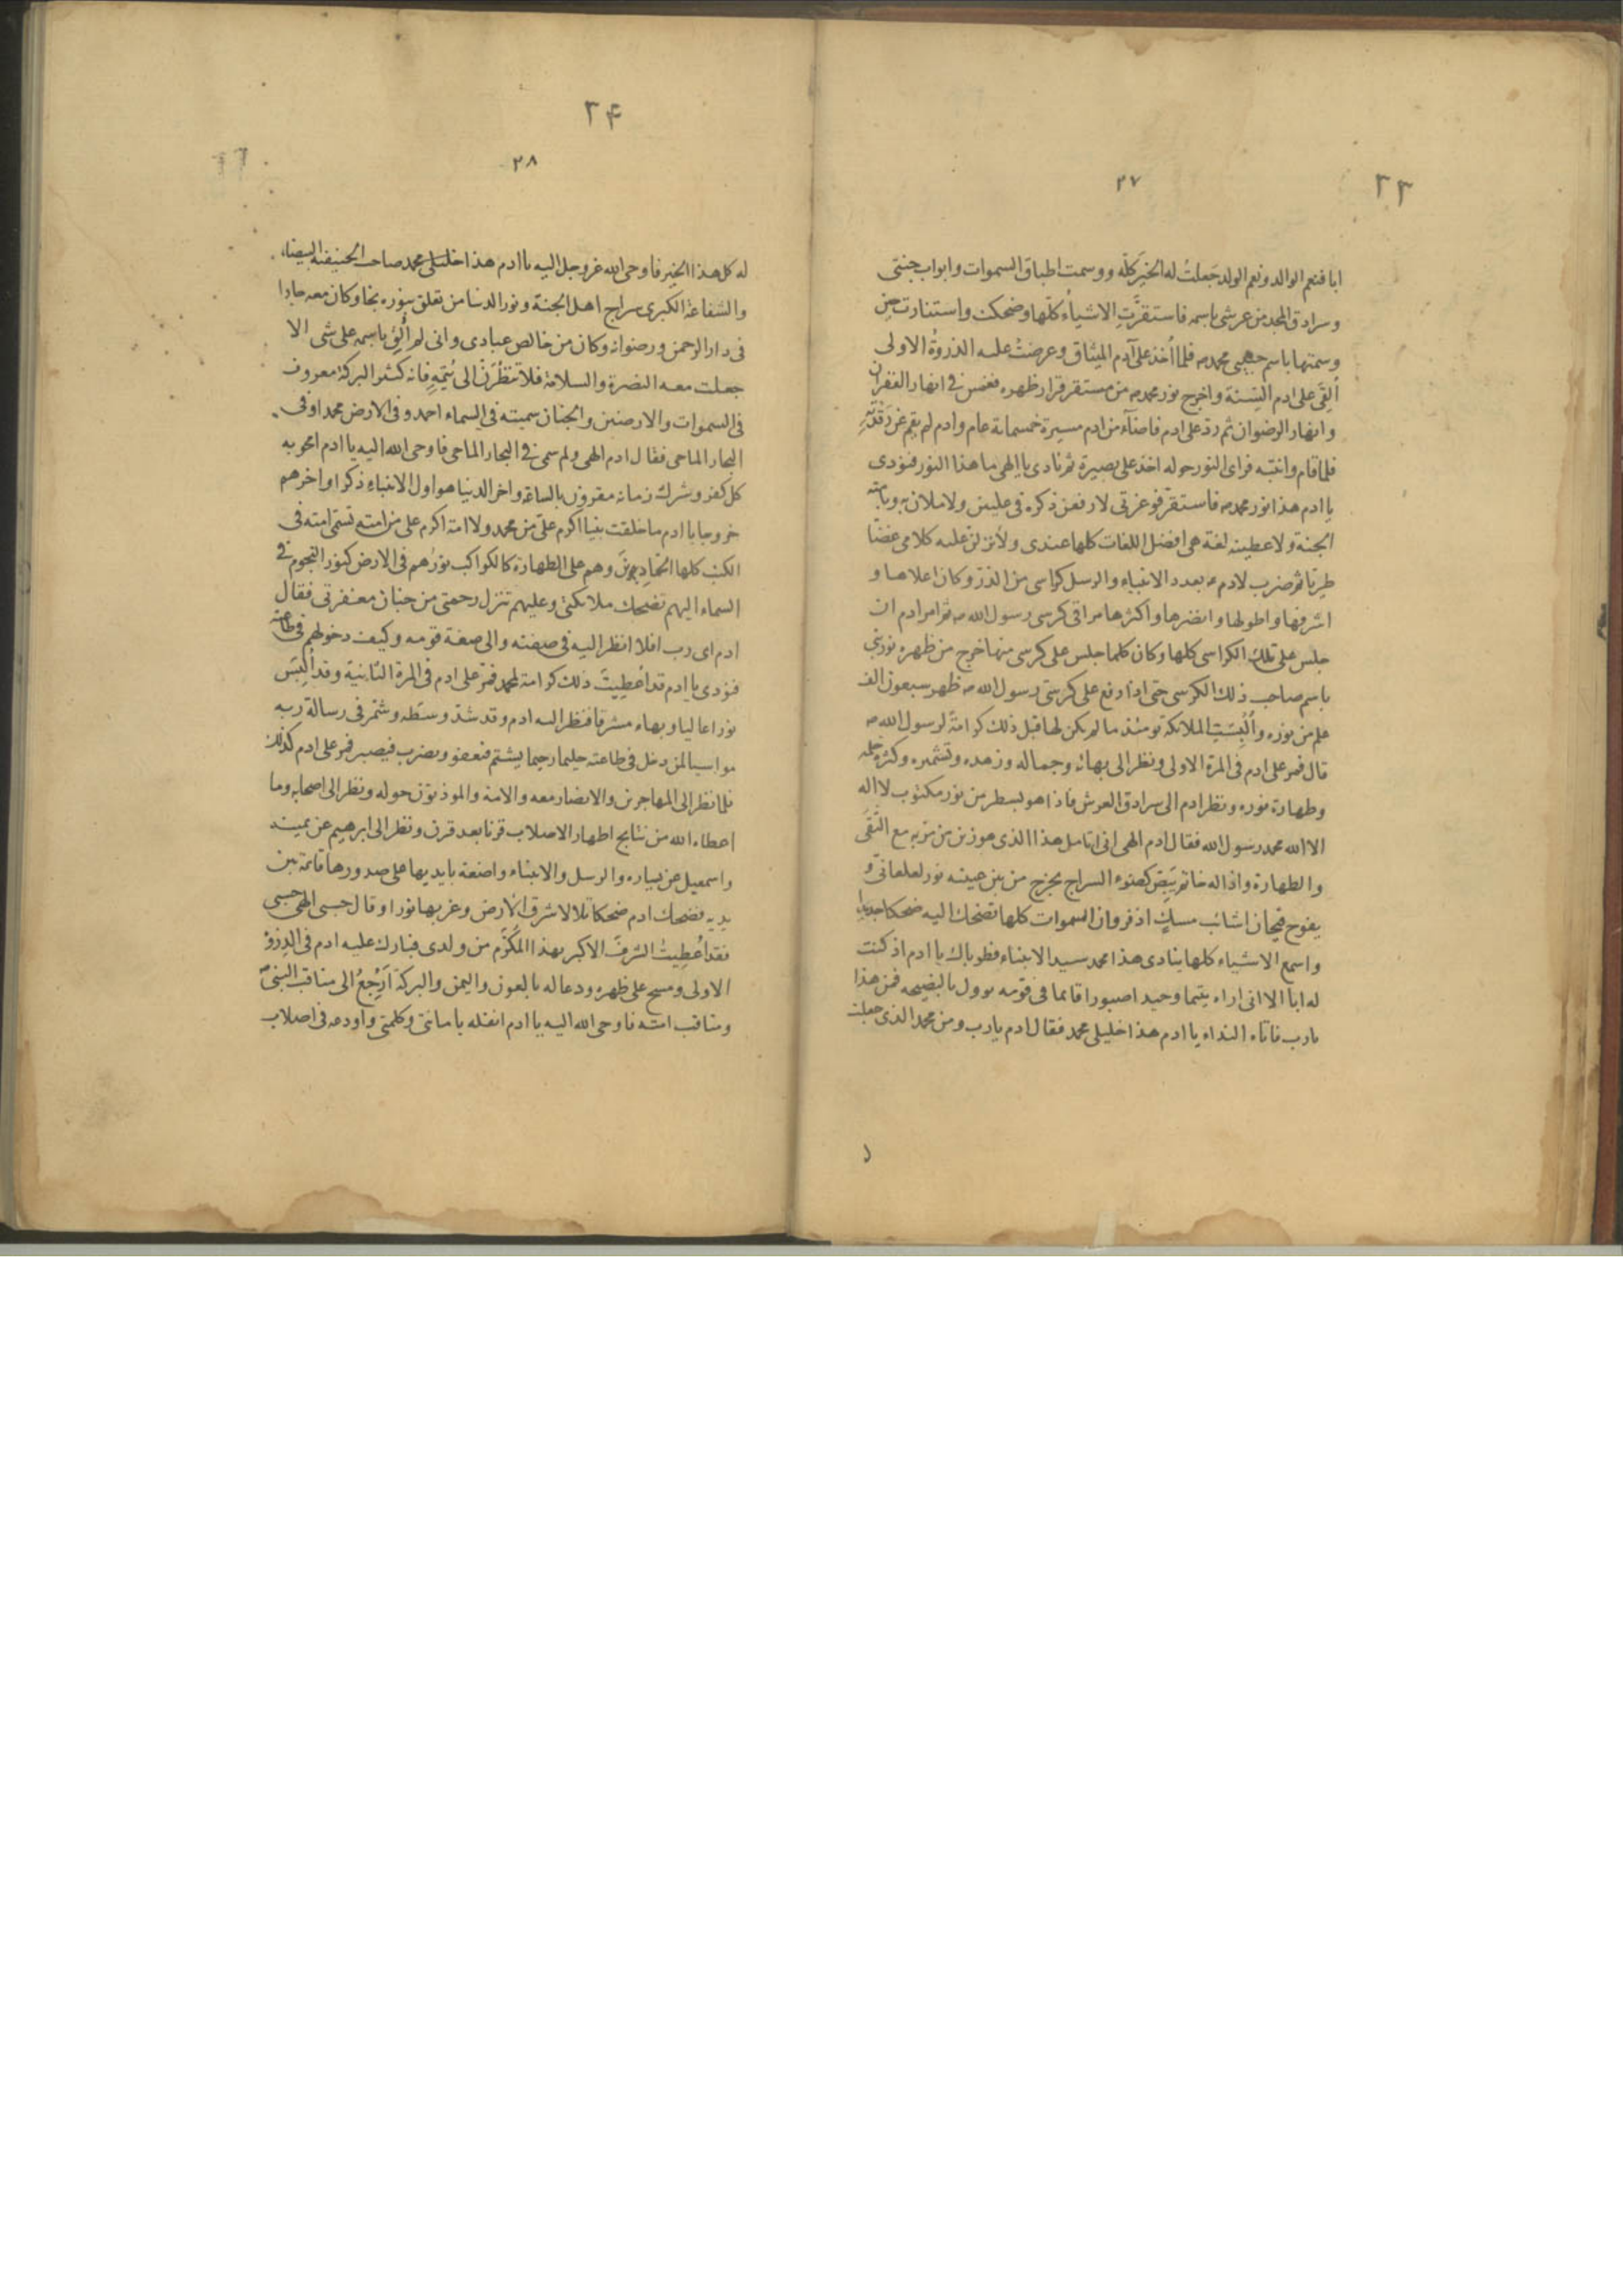 ٢٣
٢٧
ابا فنعم الوالد ونعم الولد جَعلتُ له الخيرَ كلَّه ووسمت اطباق السموات وابواب جنتى
وسرادق المجد من عرشى باسمه فاستقرَّتِ الاشياءُ كلها وضحكت واستنارت حين
وسمتها باسم حبيبى محمد ص فلما أُخذ على آدم الميثاق وعرضتْ عليه الذروةُ الاولى
أُلقَى على ادم السِنة واخرج نور محمد ص من مستقر قرار ظهره فغمس فى انهار الغفران
وانهار الرضوان ثم ردّ على ادم فاضآء من ادم مسيرة خمسمائة عام وادم لم يقم عن رَقْدَتِه
فلما قام وانتبه فراى النور حوله اخذ على بصيرة ثم نادى يا الهى ما هذا النور فنودى
يا ادم هذا نور محمد ص فاستقر فوعزتى لارفعن ذكره فى عليين ولاملان به وبامته
الجنة ولاعطينه لغة هى افضل اللغات كلها عندى ولأنزلن عليه كلامى غضًّا
طريّا ثم ضرب لادم ع بعدد الانبياء والرسل كراسى من الذرّ وكان اعلاها و
اشرفها واطولها وانضرها واكثرها مراقى كرسى رسول الله ص ثم امر ادم ان
جلس على تلك الكراسى كلها وكان كلما جلس على كرسى منها خرج من ظهره نور نبى
باسم صاحب ذلك الكرسى حتى اذا رفع على كرسىّ رسول الله ص ظهر سبعون الف
علم من نوره وأُلْبِسَتِ الملائكة يومئذ ما لم يكن لها قبل ذلك كرامةً لرسول الله ص
قال فمر على ادم فى المرة الاولى ونظر الى بهائه وجماله وزهده وتشمره وكثرة حلمه
وطهارة نوره ونظر ادم الى سرادق العرش فاذا هو بسطر من نور مكتوب لا اله
الا الله محمد رسول الله فقال ادم الهى انى اتامل هذا الذى هو زين من مرّ به مع التقى
والطهارة واذا له خاتم يَبِصّ كضوء السراج يخرج من بين عينيه نور لعلعانىّ و
يفوح فيحان اشائب مسكٍ اذفر وان السموات كلها تضحك اليه ضحكا جديدا
واسمع الاشياء كلها ينادى هذا محمد سيد الانبياء فطوباك يا ادم اذ كنت
له ابا الا انى اراه يتيما وحيدا صبورا قائما فى قومه بالنصيحه فمن هذا
يارب فاتاه النداء يا ادم هذا خليلى محمد فقال ادم يارب ومن محمد الذى جعلت
٢۴
٢٨
له كل هذا الخير فاوحى الله عز وجل اليه يا ادم هذا خليلى محمد صاحب الحنيفية البيضاء
والشفاعة الكبرى سراج اهل الجنة ونور الدنيا من تعلق بنوره نجا وكان معه جارا
فى دار الرحمن ورضوانه وكان من خالص عبادى وانى لم أُلْقِ باسمه على شى الا
جعلت معه النضرة والسلامة فلا تَنْظُرَنَّ الى يُتْمِهِ فانه كثير البركة معروف
فى السموات والارضين والجنان سميته فى السماء احمد وفى الارض محمدا وفى
البحار الماحى فقال ادم الهى ولم سمى فى البحار الماحى فاوحى الله اليه يا ادم امحو به
كل كفر وشرك زمانه مقرون بالساعة واخر الدنيا هو اول الانبياء ذكرا واخرهم
خروجا يا ادم ما خلقت نبيا اكرم علىّ من محمد ولا امة اكرم على من امته تسمى امته فى
الكتب كلها الحَمَّادون وهم على الطهارة كالكواكب نورهم فى الارض كنور النجوم فى
السماء اليهم تضحك ملائكتى وعليهم تنزل رحمتى من جنان مغفرتى فقال
ادم اى رب افلا انظر اليه فى صفته والى صفة قومه وكيف دخولهم فى طاعته
فنودى يا ادم قد أعطيتُ ذلك كرامة لمحمد فمرّ على ادم فى المرة الثانية وقد أُلْبِسَ
نورا عاليا وبهاء مشرقا فنظر اليه ادم وقد شدّ وسَطه وشمّر فى رسالة ربه
مواسيا لمن دخل فى طاعته حليما رحيما يشتم فيعفو ويضرب فيصبر فمر على ادم كذلك
فلما نظر الى المهاجرين والانصار معه والامة والموذنون حوله ونظر الى اصحابه وما
اعطاه الله من نتايج اطهار الاصلاب قرنا بعد قرن ونظر الى ابرهيم عن يمينه
واسمعيل عن يساره والرسل والانبياء واضعة بايديها على صدورها قائمة بين
يديه فضحك ادم ضحكا تلالا شرق الارض وغربها نورا وقال حسبى الهى حسبى
فقد أُعطِيتُ الشرفَ الاكبر بهذا المكرّم من ولدى فبارك عليه ادم فى الذِرْوَة
الاولى ومسح على ظهره ودعا له بالعون واليمن والبركة أَرْجِعُ الى مناقب النبىّ ص
ومناقب امته فاوحى الله اليه يا ادم انقله بامانتى وكلمتى واودعه فى اصلاب